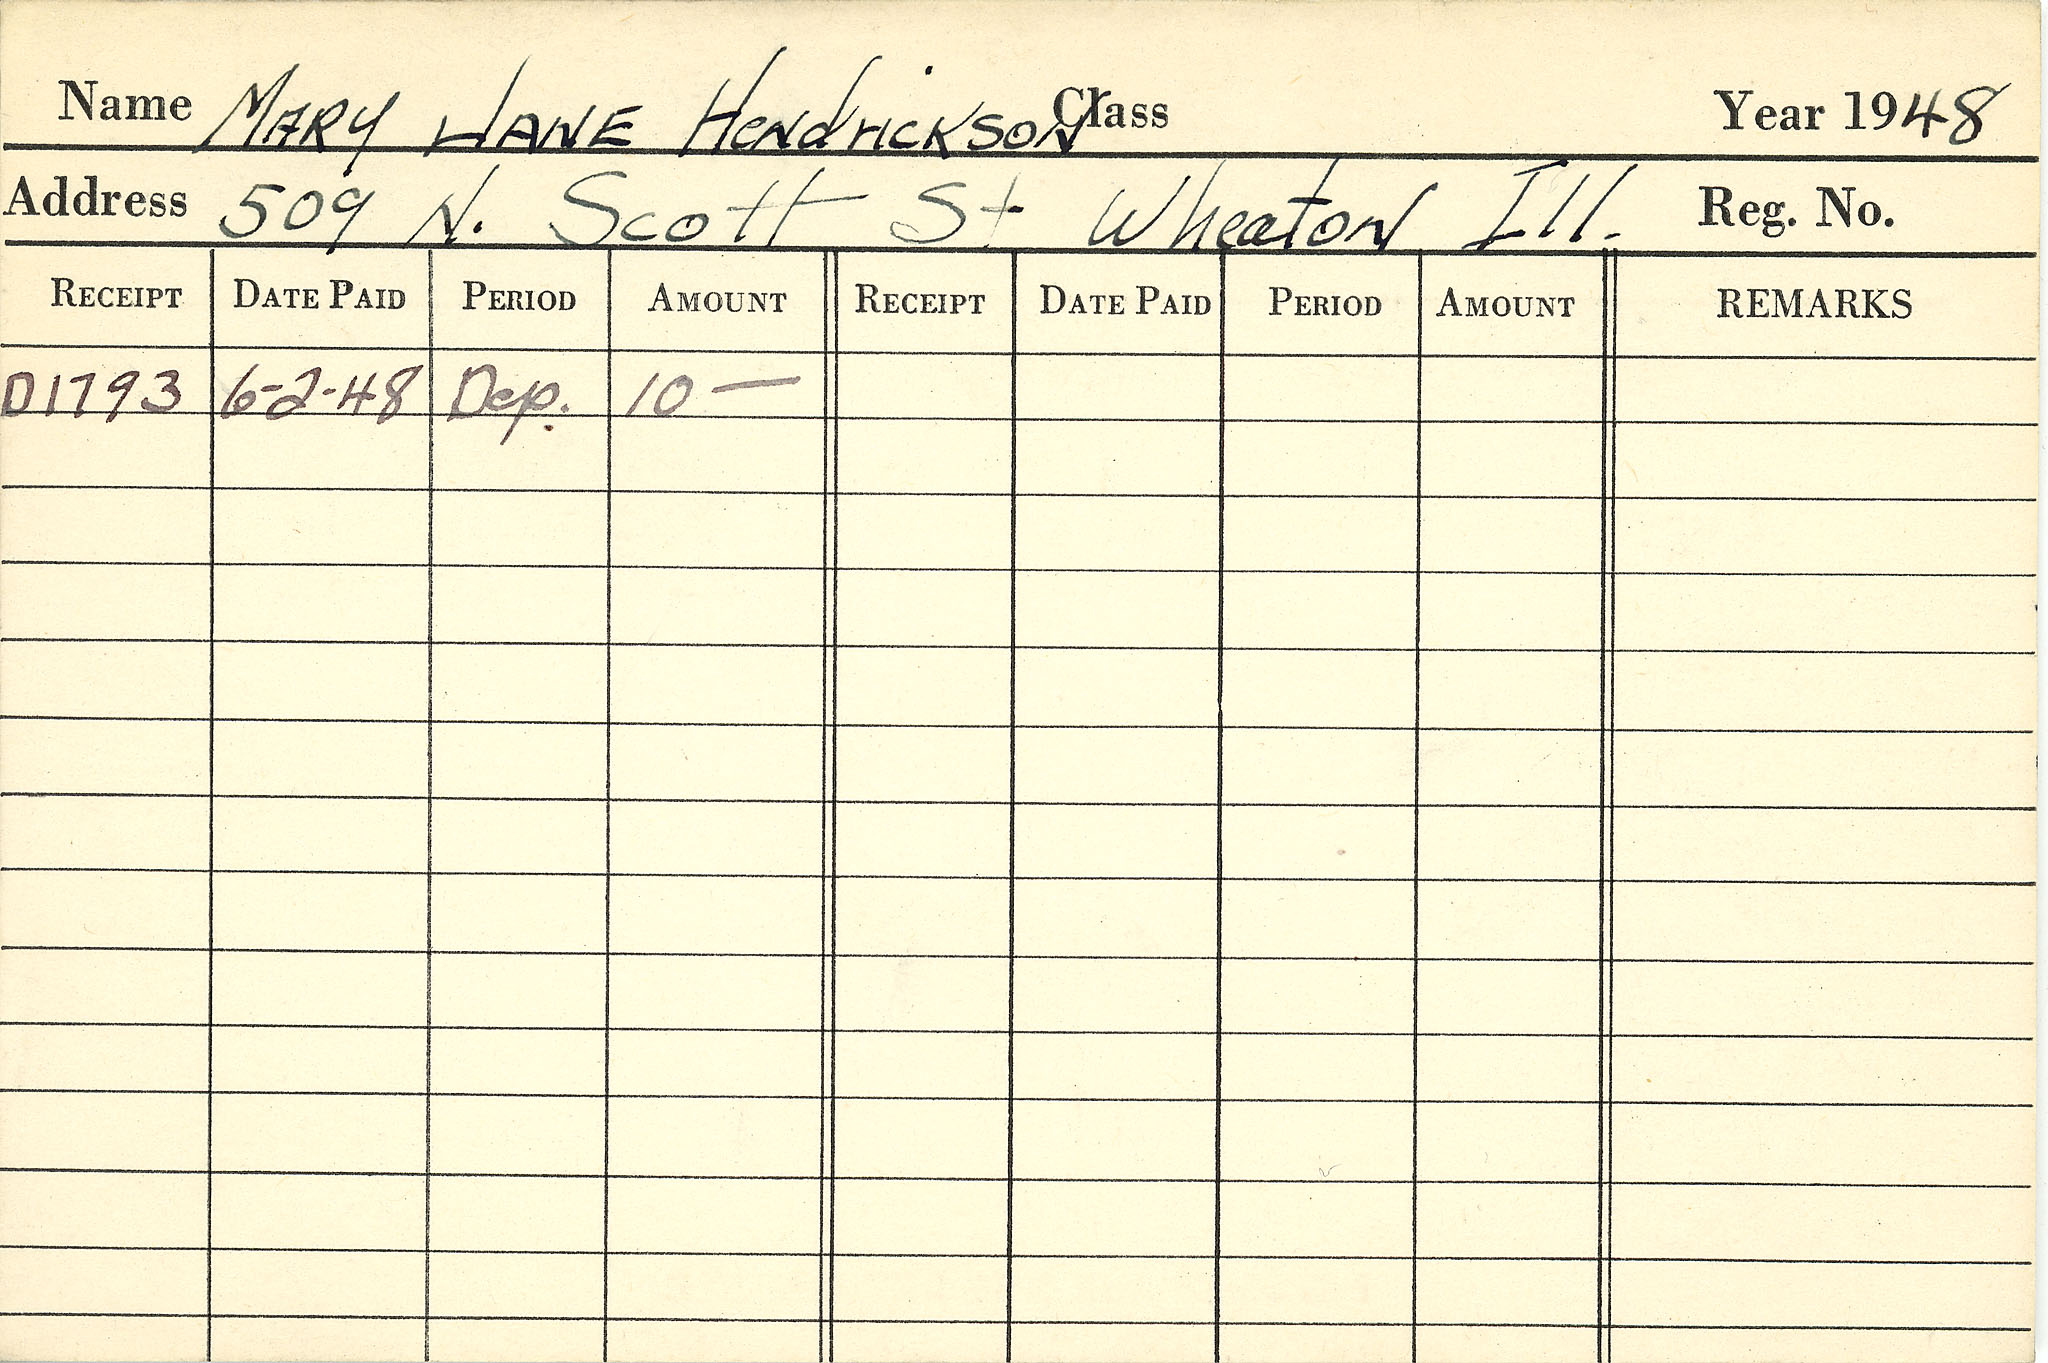 Name MARY JANE HENDRICKSON Class Year 1948
Address 509 N. Scott St Wheaton Ill. Reg. No.
RECEIPT DATE PAID PERIOD AMOUNT RECEIPT DATE PAID PERIOD AMOUNT REMARKS
D1793 6-2-48 Dep. 10 —